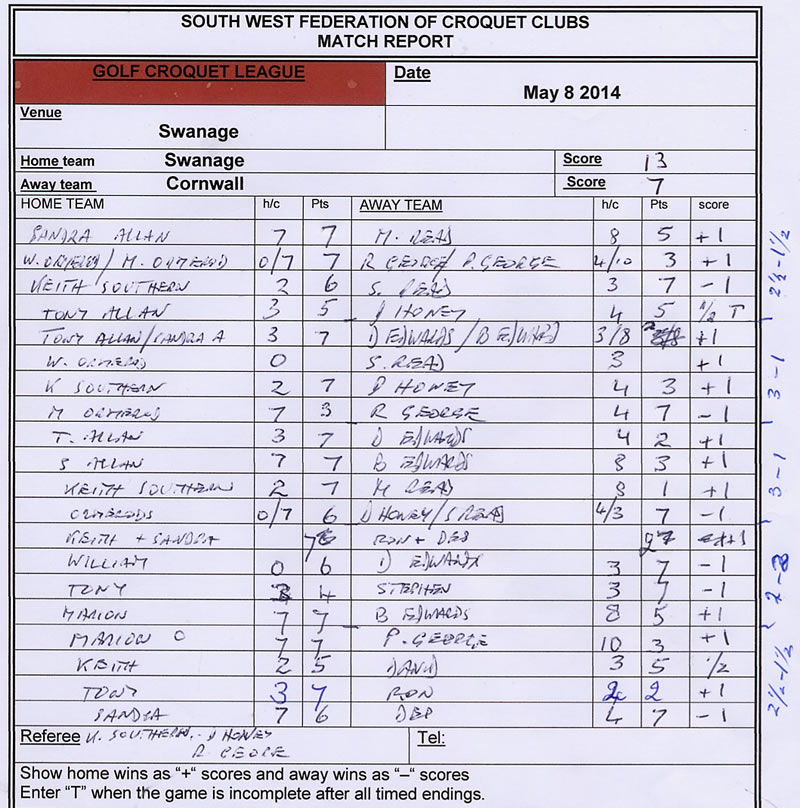 SOUTH WEST FEDERATION OF CROQUET CLUBS
MATCH REPORT
GOLF CROQUET LEAGUE Date
May 8 2014
Venue
Swanage
Home team Swanage Score 13
Away team Cornwall Score 7
HOME TEAM h/c Pts AWAY TEAM h/c Pts score
SANDRA ALLAN 7 7 M. READ 8 5 +1
W. ORMEROD / M. ORMEROD 0/7 7 R GEORGE / P. GEORGE 4/10 3 +1
KEITH SOUTHERN 2 6 S. READ 3 7 -1
TONY ALLAN 3 5 HONEY 4 5 1/2 T
2½-1½
TONY ALLAN/SANDRA A 3 7 D EDWARDS / B EDWARDS 3/8 +1
W. ORMEROD 0 S. READ 3 +1
K SOUTHERN 2 7 HONEY 4 3 +1
M ORMEROD 7 3 R GEORGE 4 7 -1
3-1
T. ALLAN 3 7 D EDWARDS 4 2 +1
S ALLAN 7 7 B EDWARDS 8 3 +1
KEITH SOUTHERN 2 7 M READ 8 1 +1
ORMERODS 0/7 6 HONEY/S READ 4/3 7 -1
3-1
KEITH + SANDRA 7 RON + DEB 2 +1
WILLIAM 0 6 D EDWARDS 3 7 -1
TONY 4 STEPHEN 3 7 -1
MARION 7 7 B EDWARDS 8 5 +1
MARION O 7 7 P. GEORGE 10 3 +1
KEITH 2 5 DAVID 3 5 1/2
TONY 3 7 RON 2 +1
SANDRA 7 6 DEB 4 7 -1
2½-1½
Referee K. SOUTHERN HONEY Tel:
R GEORGE
Show home wins as "+" scores and away wins as "–" scores
Enter "T" when the game is incomplete after all timed endings.